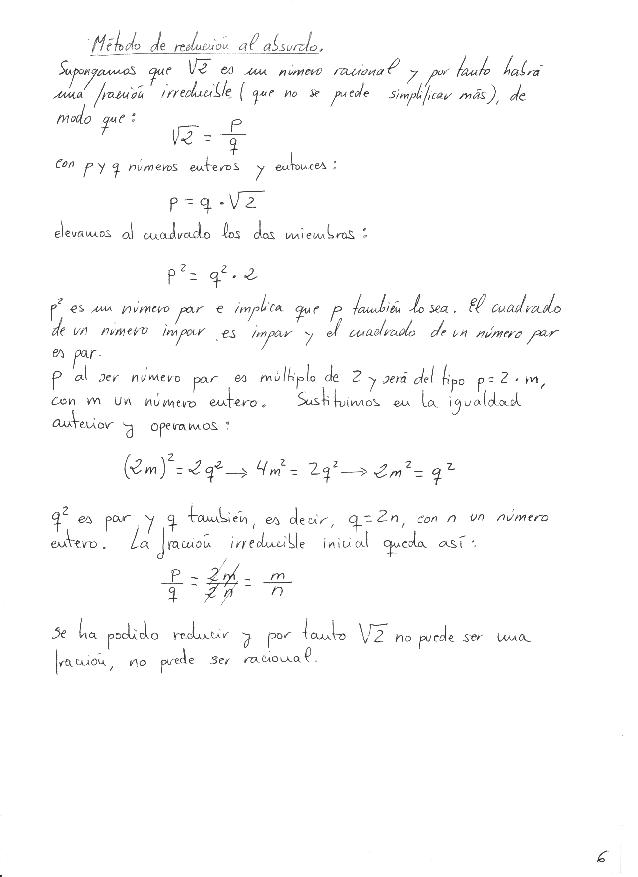 Método de reducción al absurdo.
Supongamos que √2 es un número racional y por tanto habrá
una fracción irreducible (que no se puede simplificar más), de
modo que:
√2 = p/q
con p y q números enteros y entonces:
p = q · √2
elevamos al cuadrado los dos miembros:
p² = q² · 2
p² es un número par e implica que p también lo sea. El cuadrado
de un número impar es impar y el cuadrado de un número par
es par.
p al ser número par es múltiplo de 2 y será del tipo p = 2 · m,
con m un número entero. Sustituimos en la igualdad
anterior y operamos:
(2m)² = 2q² → 4m² = 2q² → 2m² = q²
q² es par y q también, es decir, q = 2n, con n un número
entero. La fracción irreducible inicial queda así:
p/q = 2m/2n = m/n
se ha podido reducir y por tanto √2 no puede ser una
fracción, no puede ser racional.
6